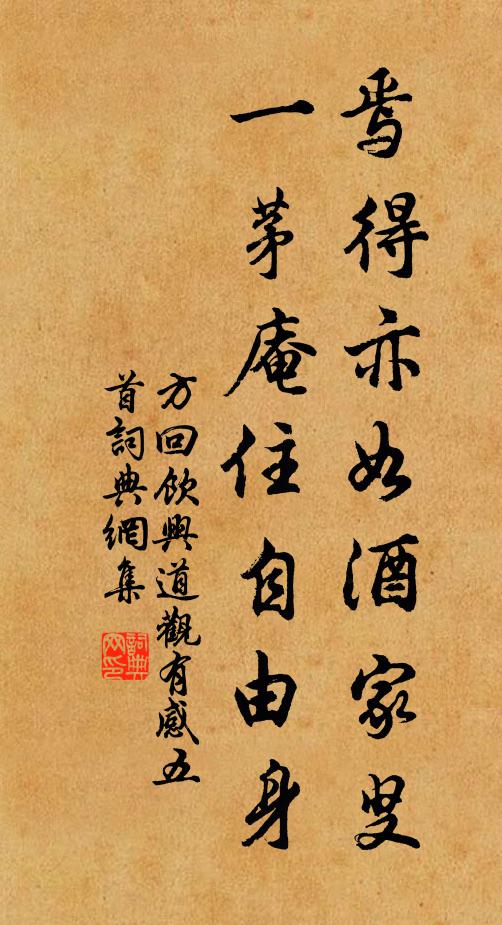 焉得亦如酒家叟
一茅庵住自由身
方回飲興道觀有感五
首詞典網集
詞典
网印